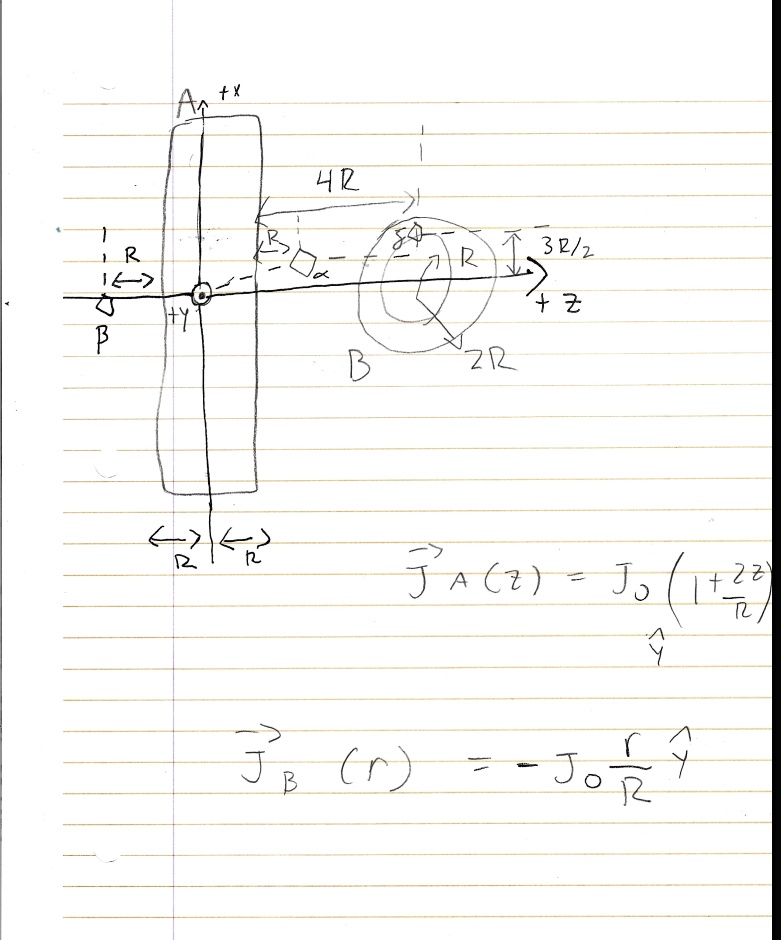 A +x
4R
R
R
δ
3R/2
α
R
+y
+ z
β
B
2R
R R
J⃗ A (z) = J₀ (1 + 2z/R)
ŷ
J⃗ B (r) = - J₀ r/R ŷ